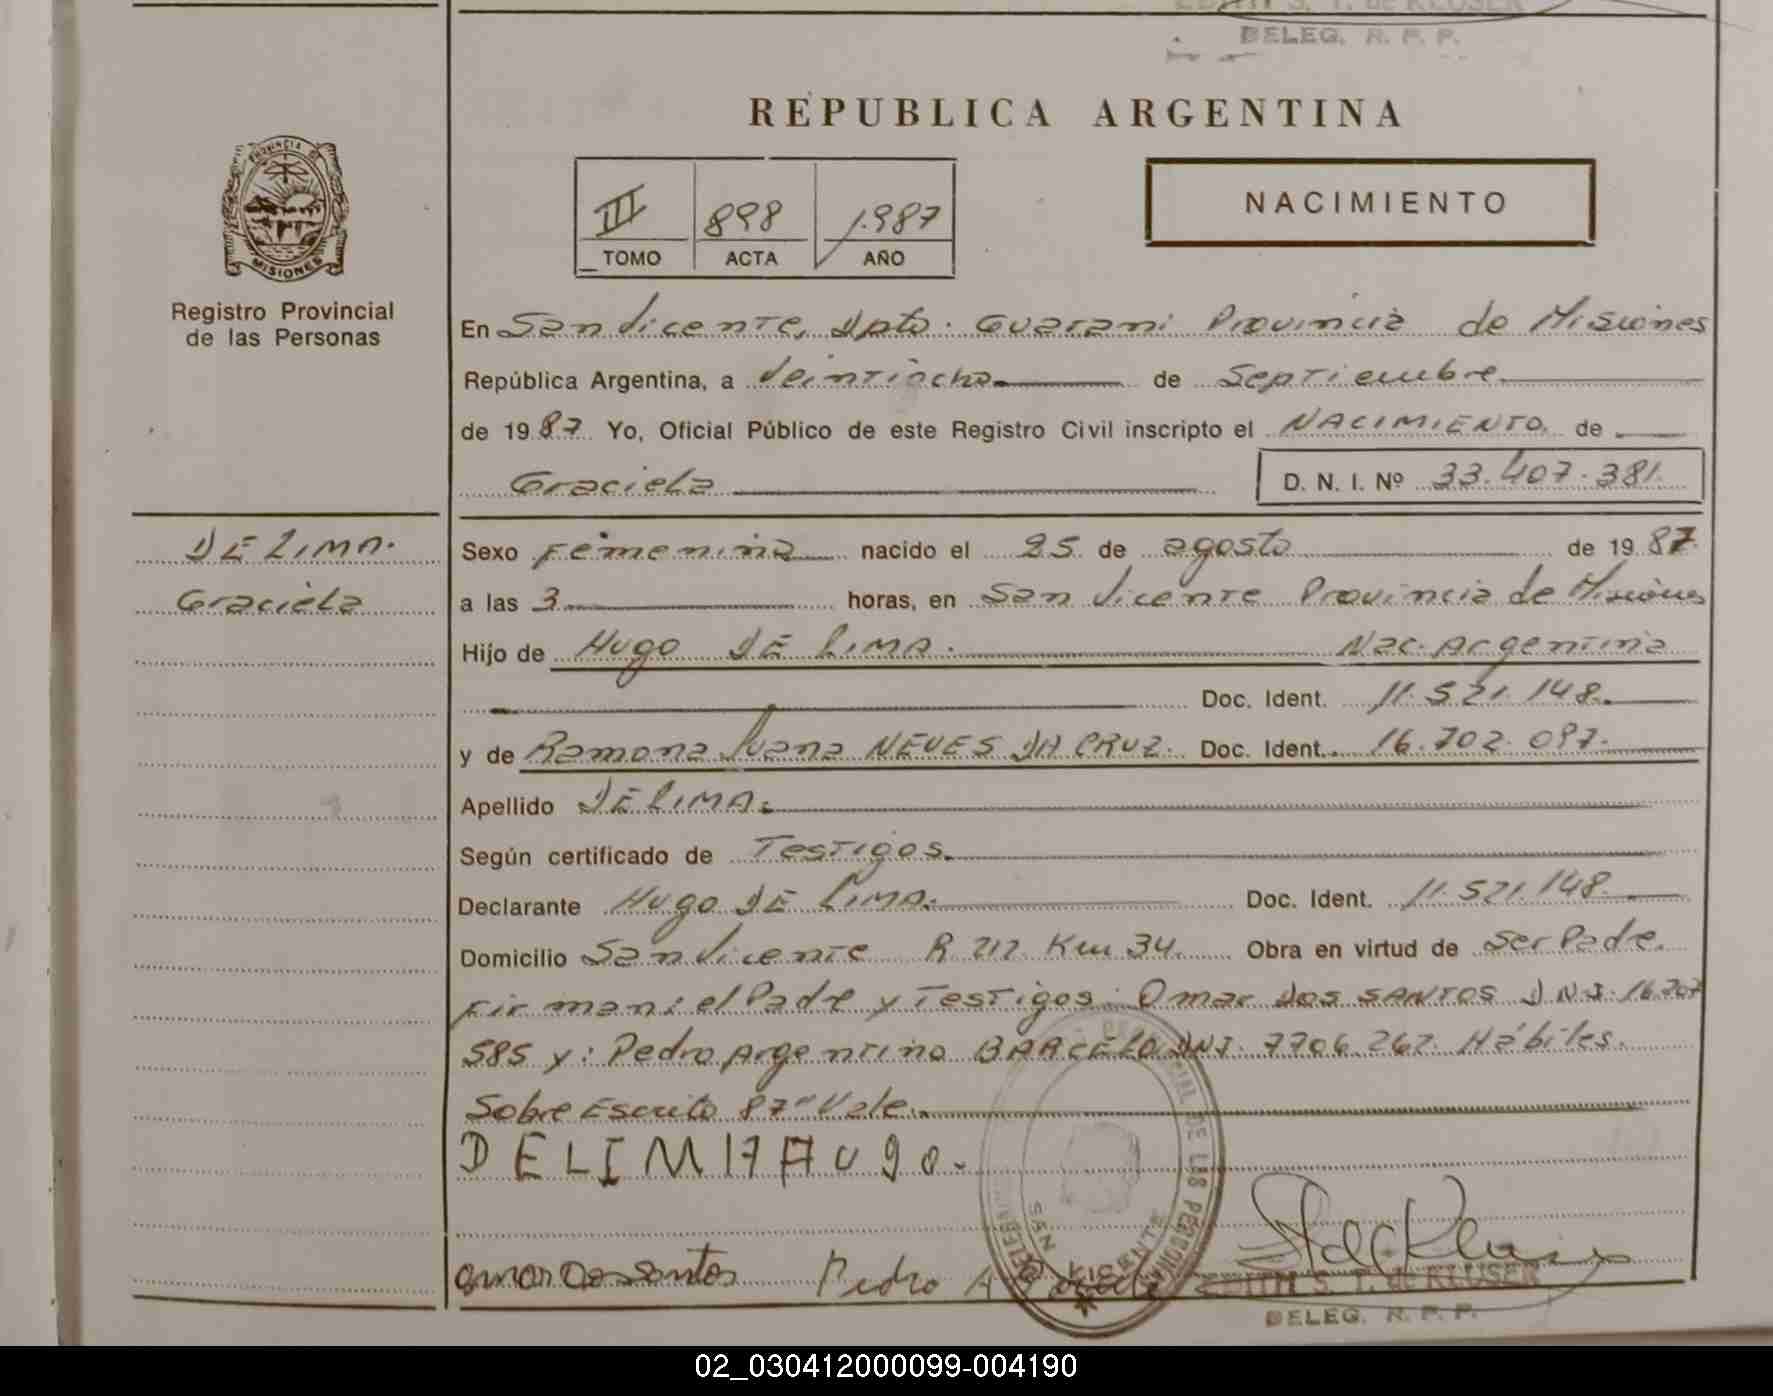 EDITH S. T. de KLUSER
DELEG. R. P. P.
REPUBLICA ARGENTINA
PROVINCIA DE
MISIONES
Registro Provincial
de las Personas
III 898 1.987
TOMO ACTA AÑO
NACIMIENTO
En San Vicente, Dpto. Guarani Provincia de Misiones
República Argentina, a Veintiocho de Septiembre
de 1987 Yo, Oficial Público de este Registro Civil inscripto el NACIMIENTO de
Graciela D. N. I. Nº 33.407.381.
DE LIMA.
Graciela
Sexo Femenina nacido el 25 de agosto de 1987.
a las 3 horas, en San Vicente Provincia de Misiones
Hijo de Hugo DE LIMA. Nac. Argentina
Doc. Ident. 11.521.148.
y de Ramona Juana NEVES DA CRUZ. Doc. Ident. 16.702.097.
Apellido DE LIMA.
Según certificado de Testigos.
Declarante Hugo DE LIMA. Doc. Ident. 11.521.148.
Domicilio San Vicente R. 212 Km 34. Obra en virtud de Ser Padre.
Firman: el Padre y Testigos: Omar DOS SANTOS D.N.I. 16.707
585 y: Pedro Argentino BARCELO DNI. 7706.262. Hábiles.
Sobre Escrito 87" Vale.
DELIMA Hugo.
omar dos santos Pedro A
EDITH S. T. de KLUSER
DELEG. R. P. P.
PROVINCIAL DE LAS PERSONAS
SAN VICENTE
02_030412000099-004190